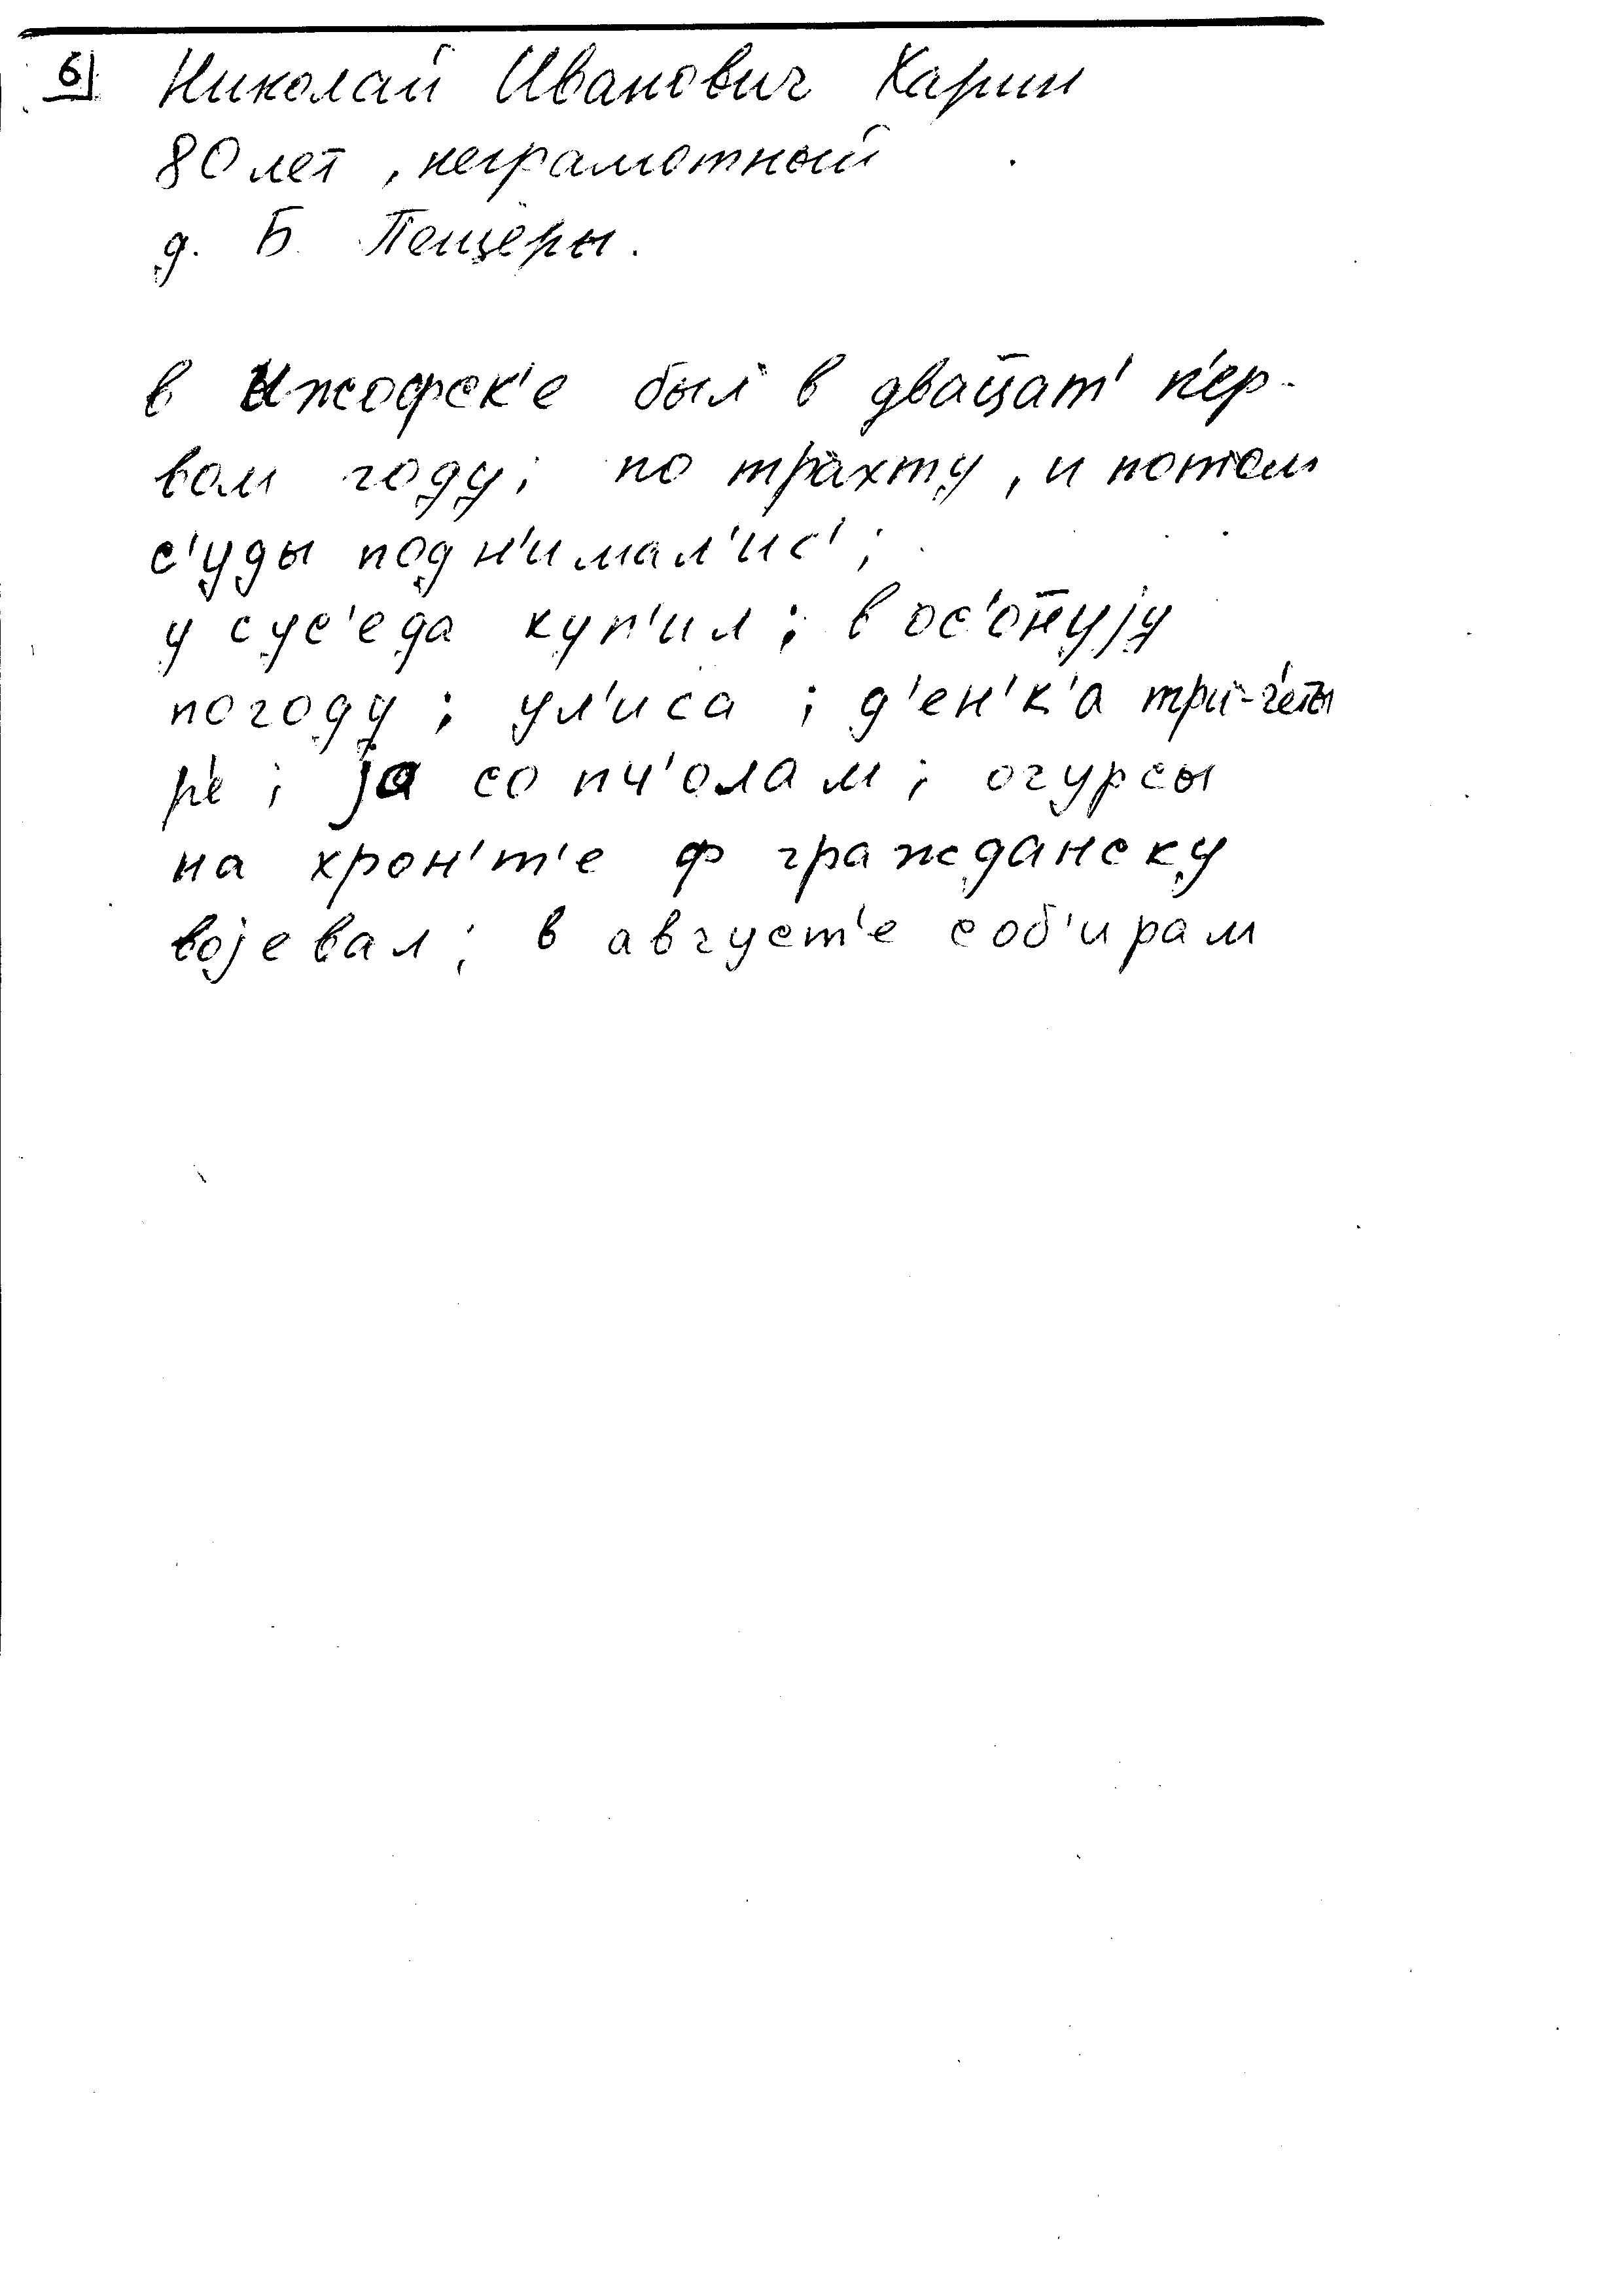 6 Николай Иванович Харин
80 лет, неграмотный
д. Б. Пещеры.
в Ижофск'е был в двац̄ат' п'ер-
вом году; по трахту, и потом
с'уды подн'имал'ис';
у сус'еда куп'ил; в ос'о̄нуjу
погоду; ул'иса; д'ен'к'а три-ч'еты
р'е; jа со пч'олам; огурсы
на хрон'т'е ф гражданску
воjевал; в август'е соб'ирам